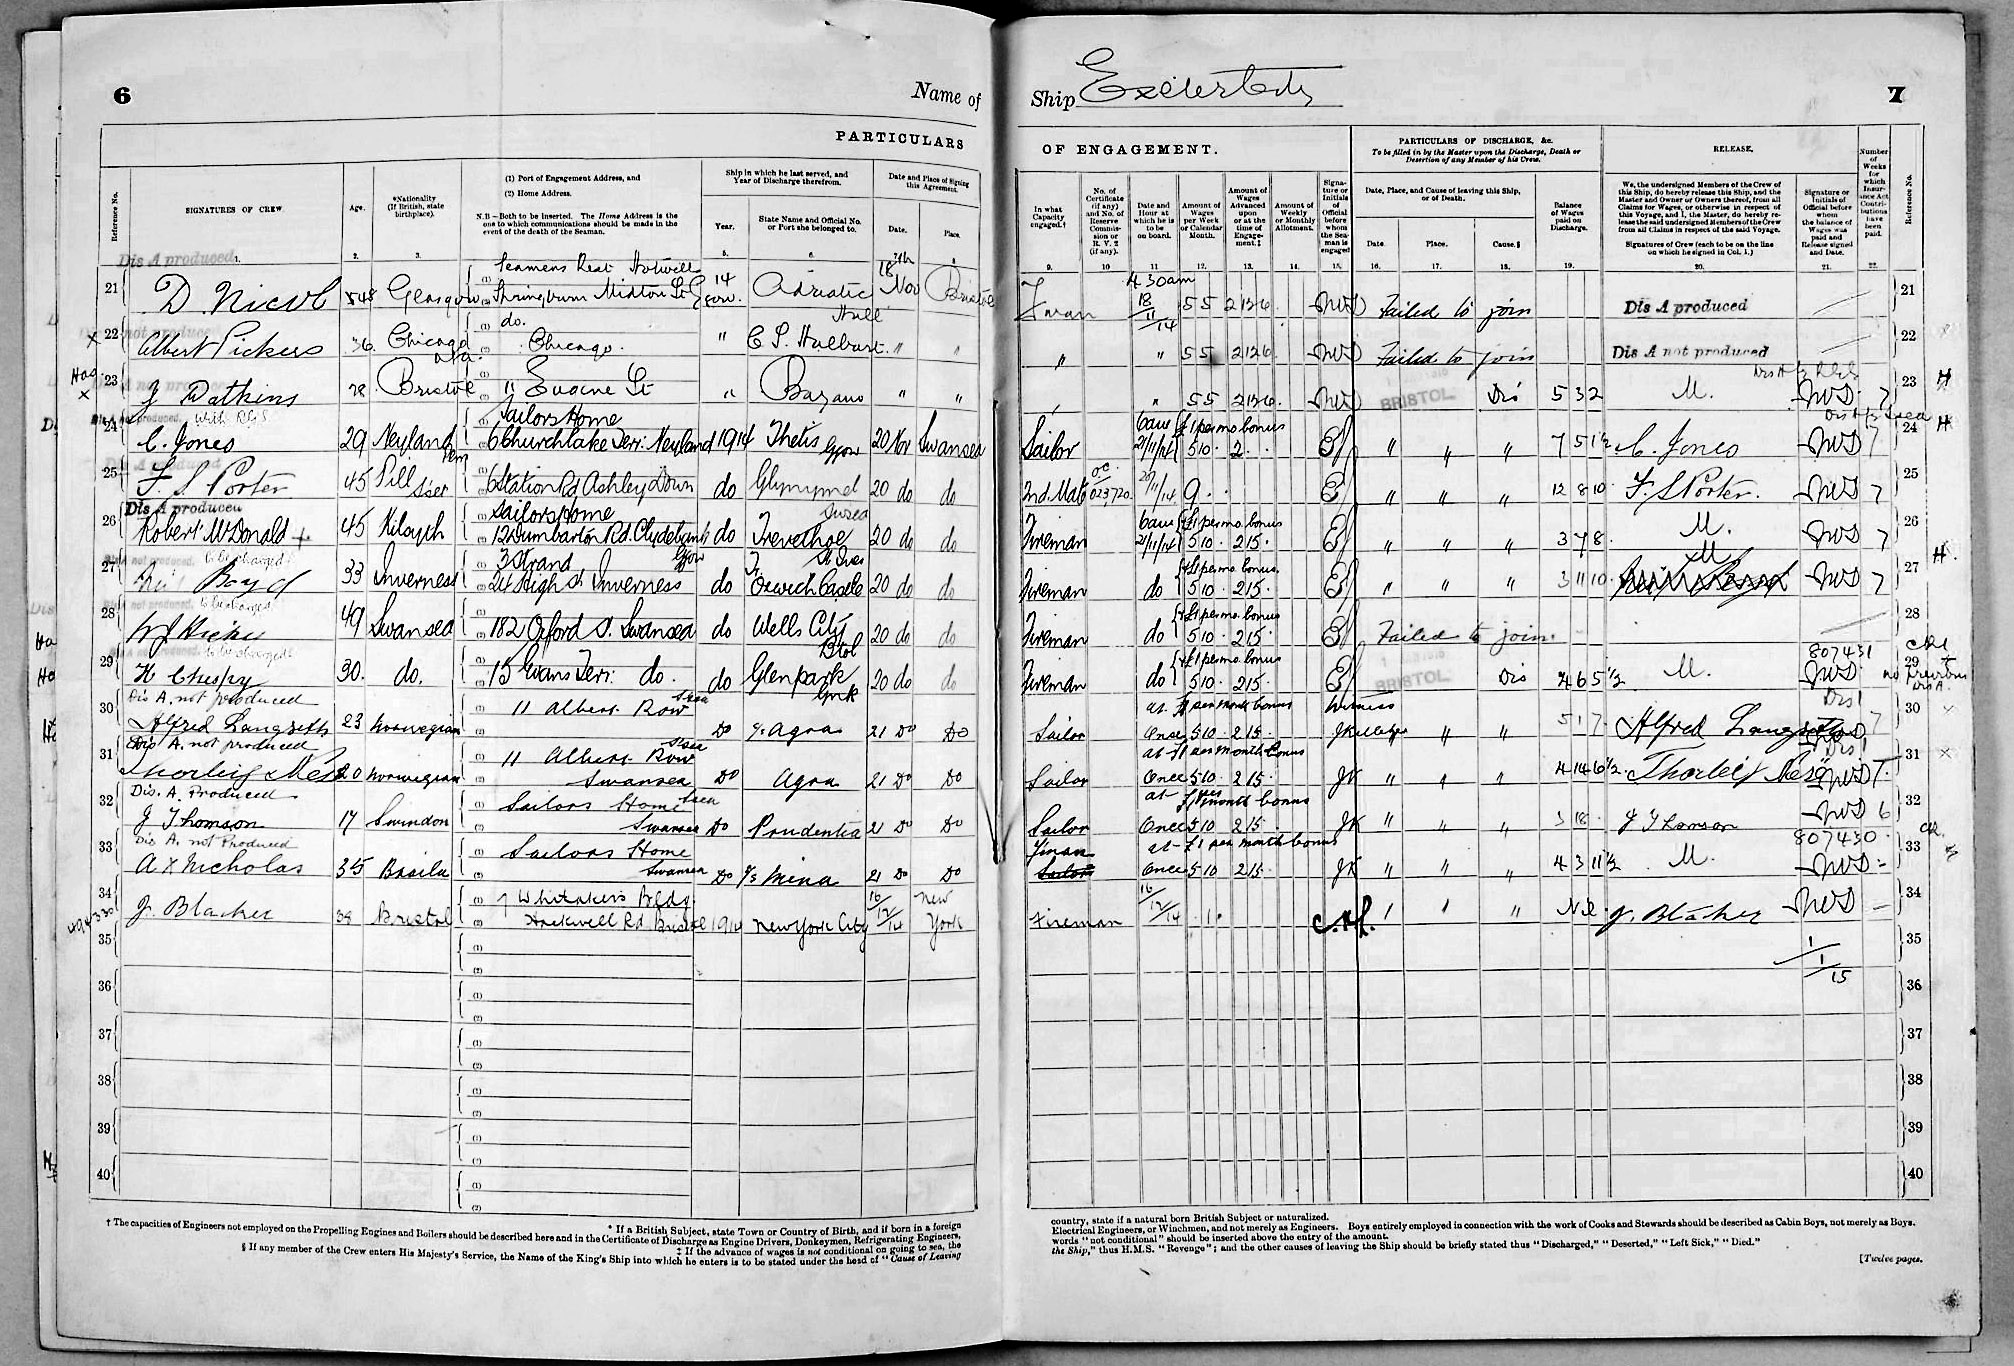 6
Name of
PARTICULARS
Reference No.
SIGNATURES OF CREW.
Age.
*Nationality (If British, state birthplace).
(1) Port of Engagement Address, and
(2) Home Address.
N.B—Both to be inserted. The Home Address is the one to which communications should be made in the event of the death of the Seaman.
Ship in which he last served, and Year of Discharge therefrom.
Year.
State Name and Official No. or Port she belonged to.
Date and Place of Signing this Agreement.
Date.
Place.
1. 2. 3. 5. 6. 8
Dis A produced
21 D. Nicol 48 Glasgow Seamens Rest Hotwell
Springburn Midton St Ggow. 14 Adriatic 18 Nov Bristol
22 Albert Pickers 36 Chicago do. Chicago. " Hull " "
23 J Watkins 28 Bristol " Eugene St " " "
with RGS
24 C. Jones 29 Neyland Pem Sailors Home
6 Churchlake Terr: Neyland 1914 Thetis Ggow 20 Nov Swansea
25 F. S. Porter 45 Pill Sset 6 Station Rd Ashley Down do 20 do do
Dis A produced
26 Robert McDonald 45 Kilsyth Sailors Home
12 Dumbarton Rd. Clydebank Ggow do Trevethoe St Ives 20 do do
to be charged
27 Boyd 33 Inverness 3 Strand
24 High St Inverness do Oxwich Castle 20 do do
Dis A not produced. to be charged
28 49 Swansea 182 Oxford St. Swansea do Wells City Btol 20 do do
to be charged
29 H Chespy 30. do. 15 Evans Terr: do. do Glenpark Gnk 20 do do
Dis A. not produced
30 Alfred Langseth 23 Norwegian 11 Albert Row Ssea Do Agra 21 Do Do
Dis A. not produced
31 Thorleif Næss 20 Norwegian 11 Albert Row Ssea
Swansea Do Agra 21 Do Do
Dis. A. Produced
32 J Thomson 17 Swindon Sailors Home
Swansea Do Prudentia 21 Do Do
Dis A. not Produced
33 A x Nicholas 35 Brasila Sailors Home
Swansea Do Mina 21 Do Do
34 J. Blacker 38 Bristol 7 Whitakers Bldg
Hotwell Rd Bristol 1914 New York City 16/12/14 New York
35
36
37
38
39
40
† The capacities of Engineers not employed on the Propelling Engines and Boilers should be described here and in the Certificate of Discharge as Engine Drivers, Donkeymen, Refrigerating Engineers,
* If a British Subject, state Town or Country of Birth, and if born in a foreign
‡ If the advance of wages is not conditional on going to sea, the
§ If any member of the Crew enters His Majesty's Service, the Name of the King's Ship into which he enters is to be stated under the head of "Cause of Leaving
Ship Exeter City
7
OF ENGAGEMENT.
PARTICULARS OF DISCHARGE, &c.
To be filled in by the Master upon the Discharge, Death or Desertion of any Member of his Crew.
RELEASE.
In what Capacity engaged.†
No. of Certificate (if any) and No. of Reserve Commission or R. V. 2 (if any).
Date and Hour at which he is to be on board.
Amount of Wages per Week or Calendar Month.
Amount of Wages Advanced upon or at the time of Engagement.‡
Amount of Weekly or Monthly Allotment.
Signature or Initials of Official before whom the Seaman is engaged
Date, Place, and Cause of leaving this Ship, or of Death.
Date.
Place.
Cause.§
Balance of Wages paid on Discharge.
We, the undersigned Members of the Crew of this Ship, do hereby release this Ship, and the Master and Owner or Owners thereof, from all Claims for Wages, or otherwise in respect of this Voyage, and I, the Master, do hereby release the said undersigned Members of the Crew from all Claims in respect of the said Voyage.
Signatures of Crew (each to be on the line on which he signed in Col. 1.)
Signature or Initials of Official before whom the balance of Wages was paid and Release signed and Date.
Number of Weeks for which Insurance Act Contributions have been paid.
Reference No.
9. 10 11 12. 13. 14. 15. 16. 17. 18. 19. 20. 21. 22.
4 30 am 18/11/14 5 5 2 12 6 Failed to join Dis A produced 21
" " 5 5 2 12 6 Failed to join Dis A not produced 22
" 5 5 2 12 6 BRISTOL Dis 5 3 2 M. 7 23 H
6am £1 per mo bonus
Sailor 21/11/14 5 10 · 2 . . " " " 7 5 1½ C. Jones 7 24 H
2nd. Mate 023720 /11/14 9 . . " " " 12 8 10 F. S Porter. 7 25
6am £1 per mo. bonus
Fireman 21/11/14 5 10 · 2 15 · " " " 3 7 8 · M. 7 26
£1 per mo. bonus.
Fireman do 5 10 · 2 15 · " " " 3 11 10 · M 7 27 H.
£1 per mo. bonus
Fireman do 5 10 · 2 15 · Failed to join. 28
£1 per mo bonus
Fireman do 5 10 · 2 15 · BRISTOL Dis 4 6 5½ M. 807431 29 no previous Dis A.
at £1 per month bonus Witness
Sailor Once 5 10 · 2 15 · " " 5 1 7 · Alfred Langseth 7 30
at £1 per month bonus
Sailor Once 5 10 · 2 15 · JK " " " 4 14 6½ Thorleif Næss 7 31
at £1 per month bonus
Sailor Once 5 10 2 15 · JK " " " 3 18 · J Thomson 6 32
Fireman at £1 per month bonus
Sailor Once 5 10 2 15 · JK " " " 4 3 11½ M. 807430 33
Fireman 16/12/14 · 1 · " " " Nil. J. Blacker 34
1/1/15
35
36
37
38
39
40
country, state if a natural born British Subject or naturalized.
Electrical Engineers, or Winchmen, and not merely as Engineers. Boys entirely employed in connection with the work of Cooks and Stewards should be described as Cabin Boys, not merely as Boys.
words "not conditional" should be inserted above the entry of the amount.
the Ship," thus H.M.S. "Revenge"; and the other causes of leaving the Ship should be briefly stated thus "Discharged," "Deserted," "Left Sick," "Died."
[Twelve pages.